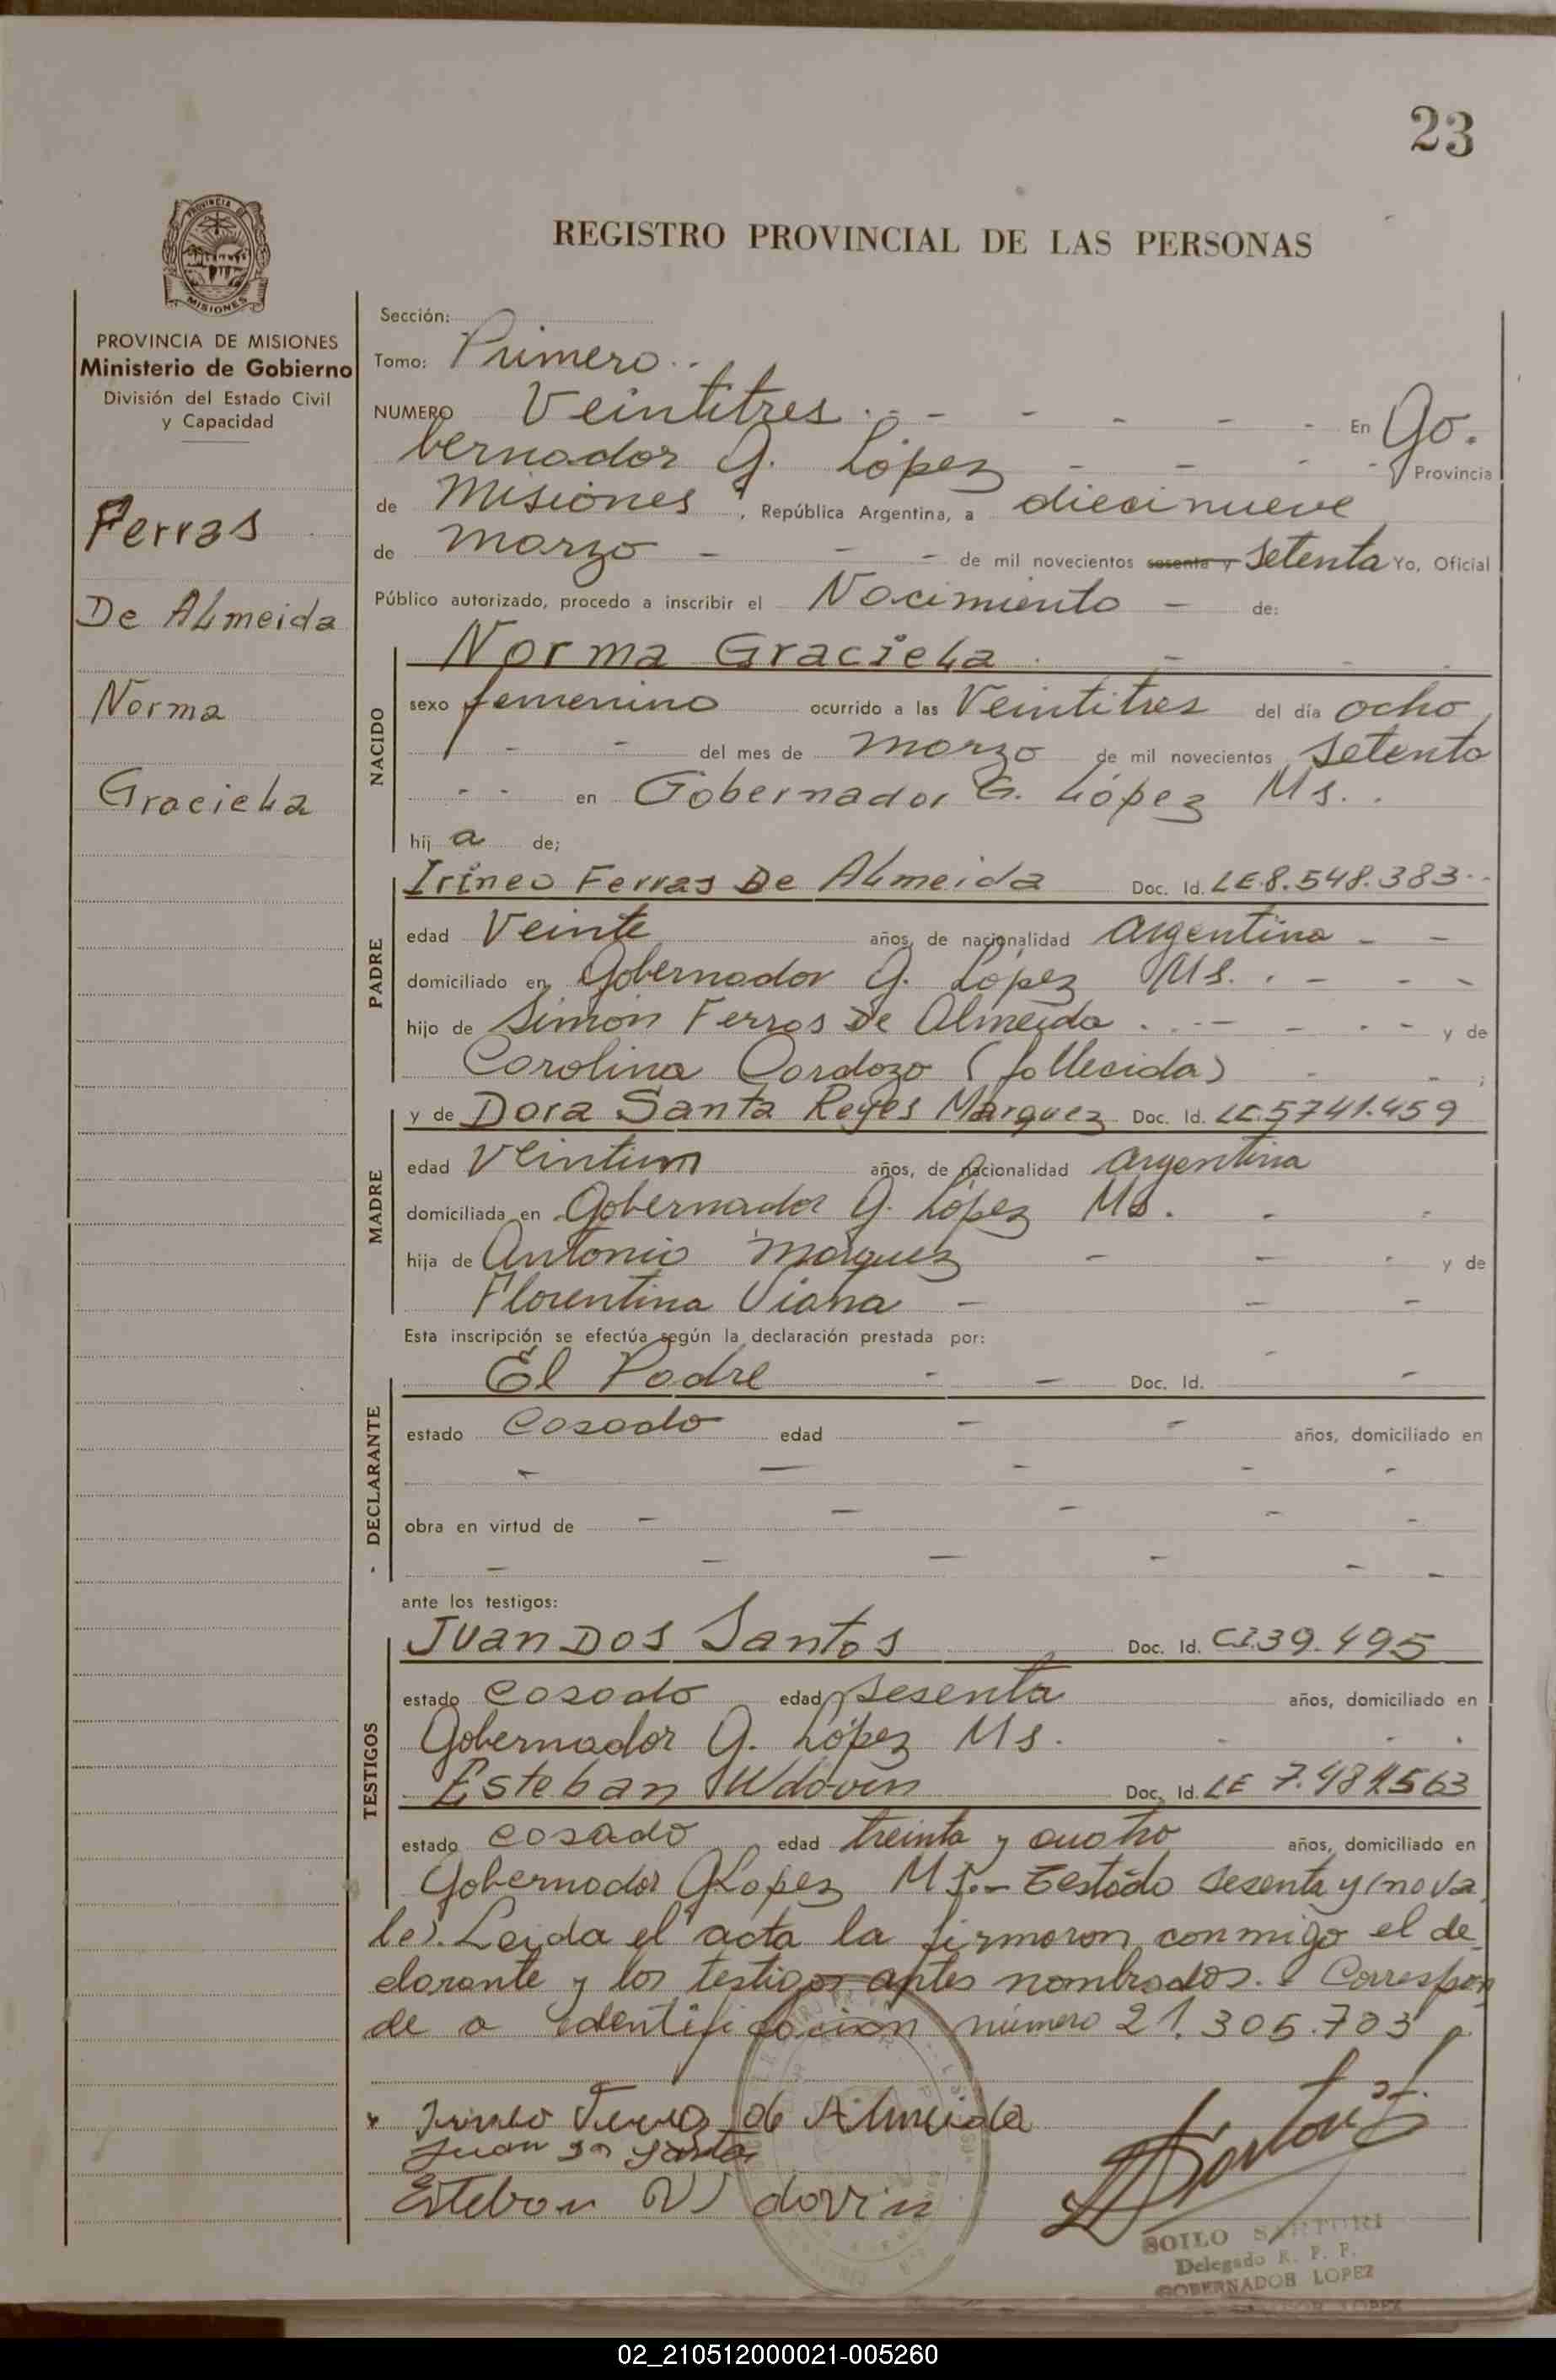 23
REGISTRO PROVINCIAL DE LAS PERSONAS
PROVINCIA DE
MISIONES
PROVINCIA DE MISIONES
Ministerio de Gobierno
División del Estado Civil
y Capacidad
Ferras
De Almeida
Norma
Graciela
Sección:
Tomo: Primero
NUMERO Veintitres - - - - - En Go.
bernador G. López - - - - Provincia
de Misiones, República Argentina, a diecinueve
de marzo - - - de mil novecientos sesenta y setenta Yo, Oficial
Público autorizado, procedo a inscribir el Nacimiento - de:
NACIDO
Norma Graciela - - -
sexo femenino ocurrido a las Veintitres del día ocho
- - del mes de marzo de mil novecientos setenta
- - en Gobernador G. López Ms.
hij a de;
PADRE
Irineo Ferras De Almeida Doc. Id. LE.8.548.383
edad Veinte años, de nacionalidad argentina - -
domiciliado en Gobernador G. López Ms. - - -
hijo de Simón Ferras De Almeida - - - - y de
Carolina Cardozo (fallecida) - - ;
MADRE
y de Dora Santa Reyes Márquez Doc. Id. LC.5741.459
edad Veintiun años, de nacionalidad argentina
domiciliada en Gobernador G. López Ms. - -
hija de Antonio Márquez - - - y de
Florentina Viana - - -
Esta inscripción se efectúa según la declaración prestada por:
DECLARANTE
El Padre - - Doc. Id. -
estado Casado edad - - años, domiciliado en
- - - - -
obra en virtud de - - - - -
- - - - - -
ante los testigos:
TESTIGOS
Juan Dos Santos Doc. Id. C.I.39.495
estado casado edad sesenta años, domiciliado en
Gobernador G. López Ms.
Esteban Wdovin Doc. Id. LE 7.484.563
estado casado edad treinta y cuatro años, domiciliado en
Gobernador G. Lopez Ms.- Testado sesenta y (no va
le). Leida el acta la firmaron conmigo el de
clarante y los testigos antes nombrados. Correspon
de a identificación número 21.305.703
Irineo Ferras de Almeida
Juan Santos
Esteban Wdovin
SOILO SARTORI
Delegado R. P. P.
GOBERNADOR LOPEZ
02_210512000021-005260